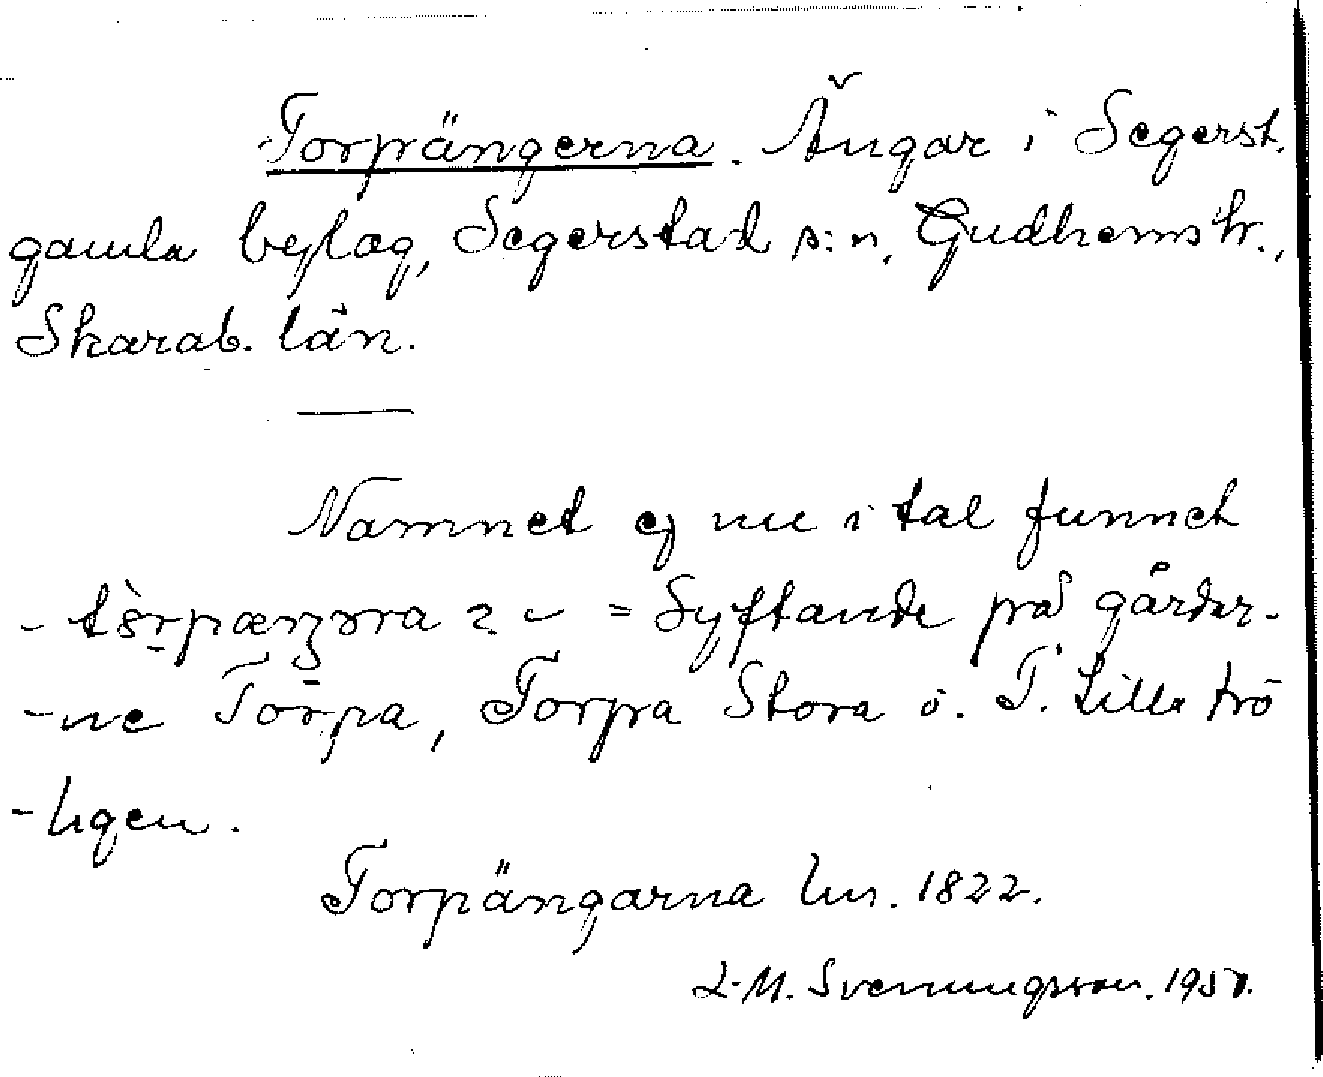 Torpängerna. Ängar i Segerst.
gamla bylag, Segerstad s:n, Gudhems hr.,
Skarab. län.
Namnet ej nu i tal funnet
= Syftande på gårdar-
-ne Torpa, Torpa Stora o. T. Lilla tro
-ligen.
Torpängarna hm. 1822.
L.M. Svenungsson. 1957.